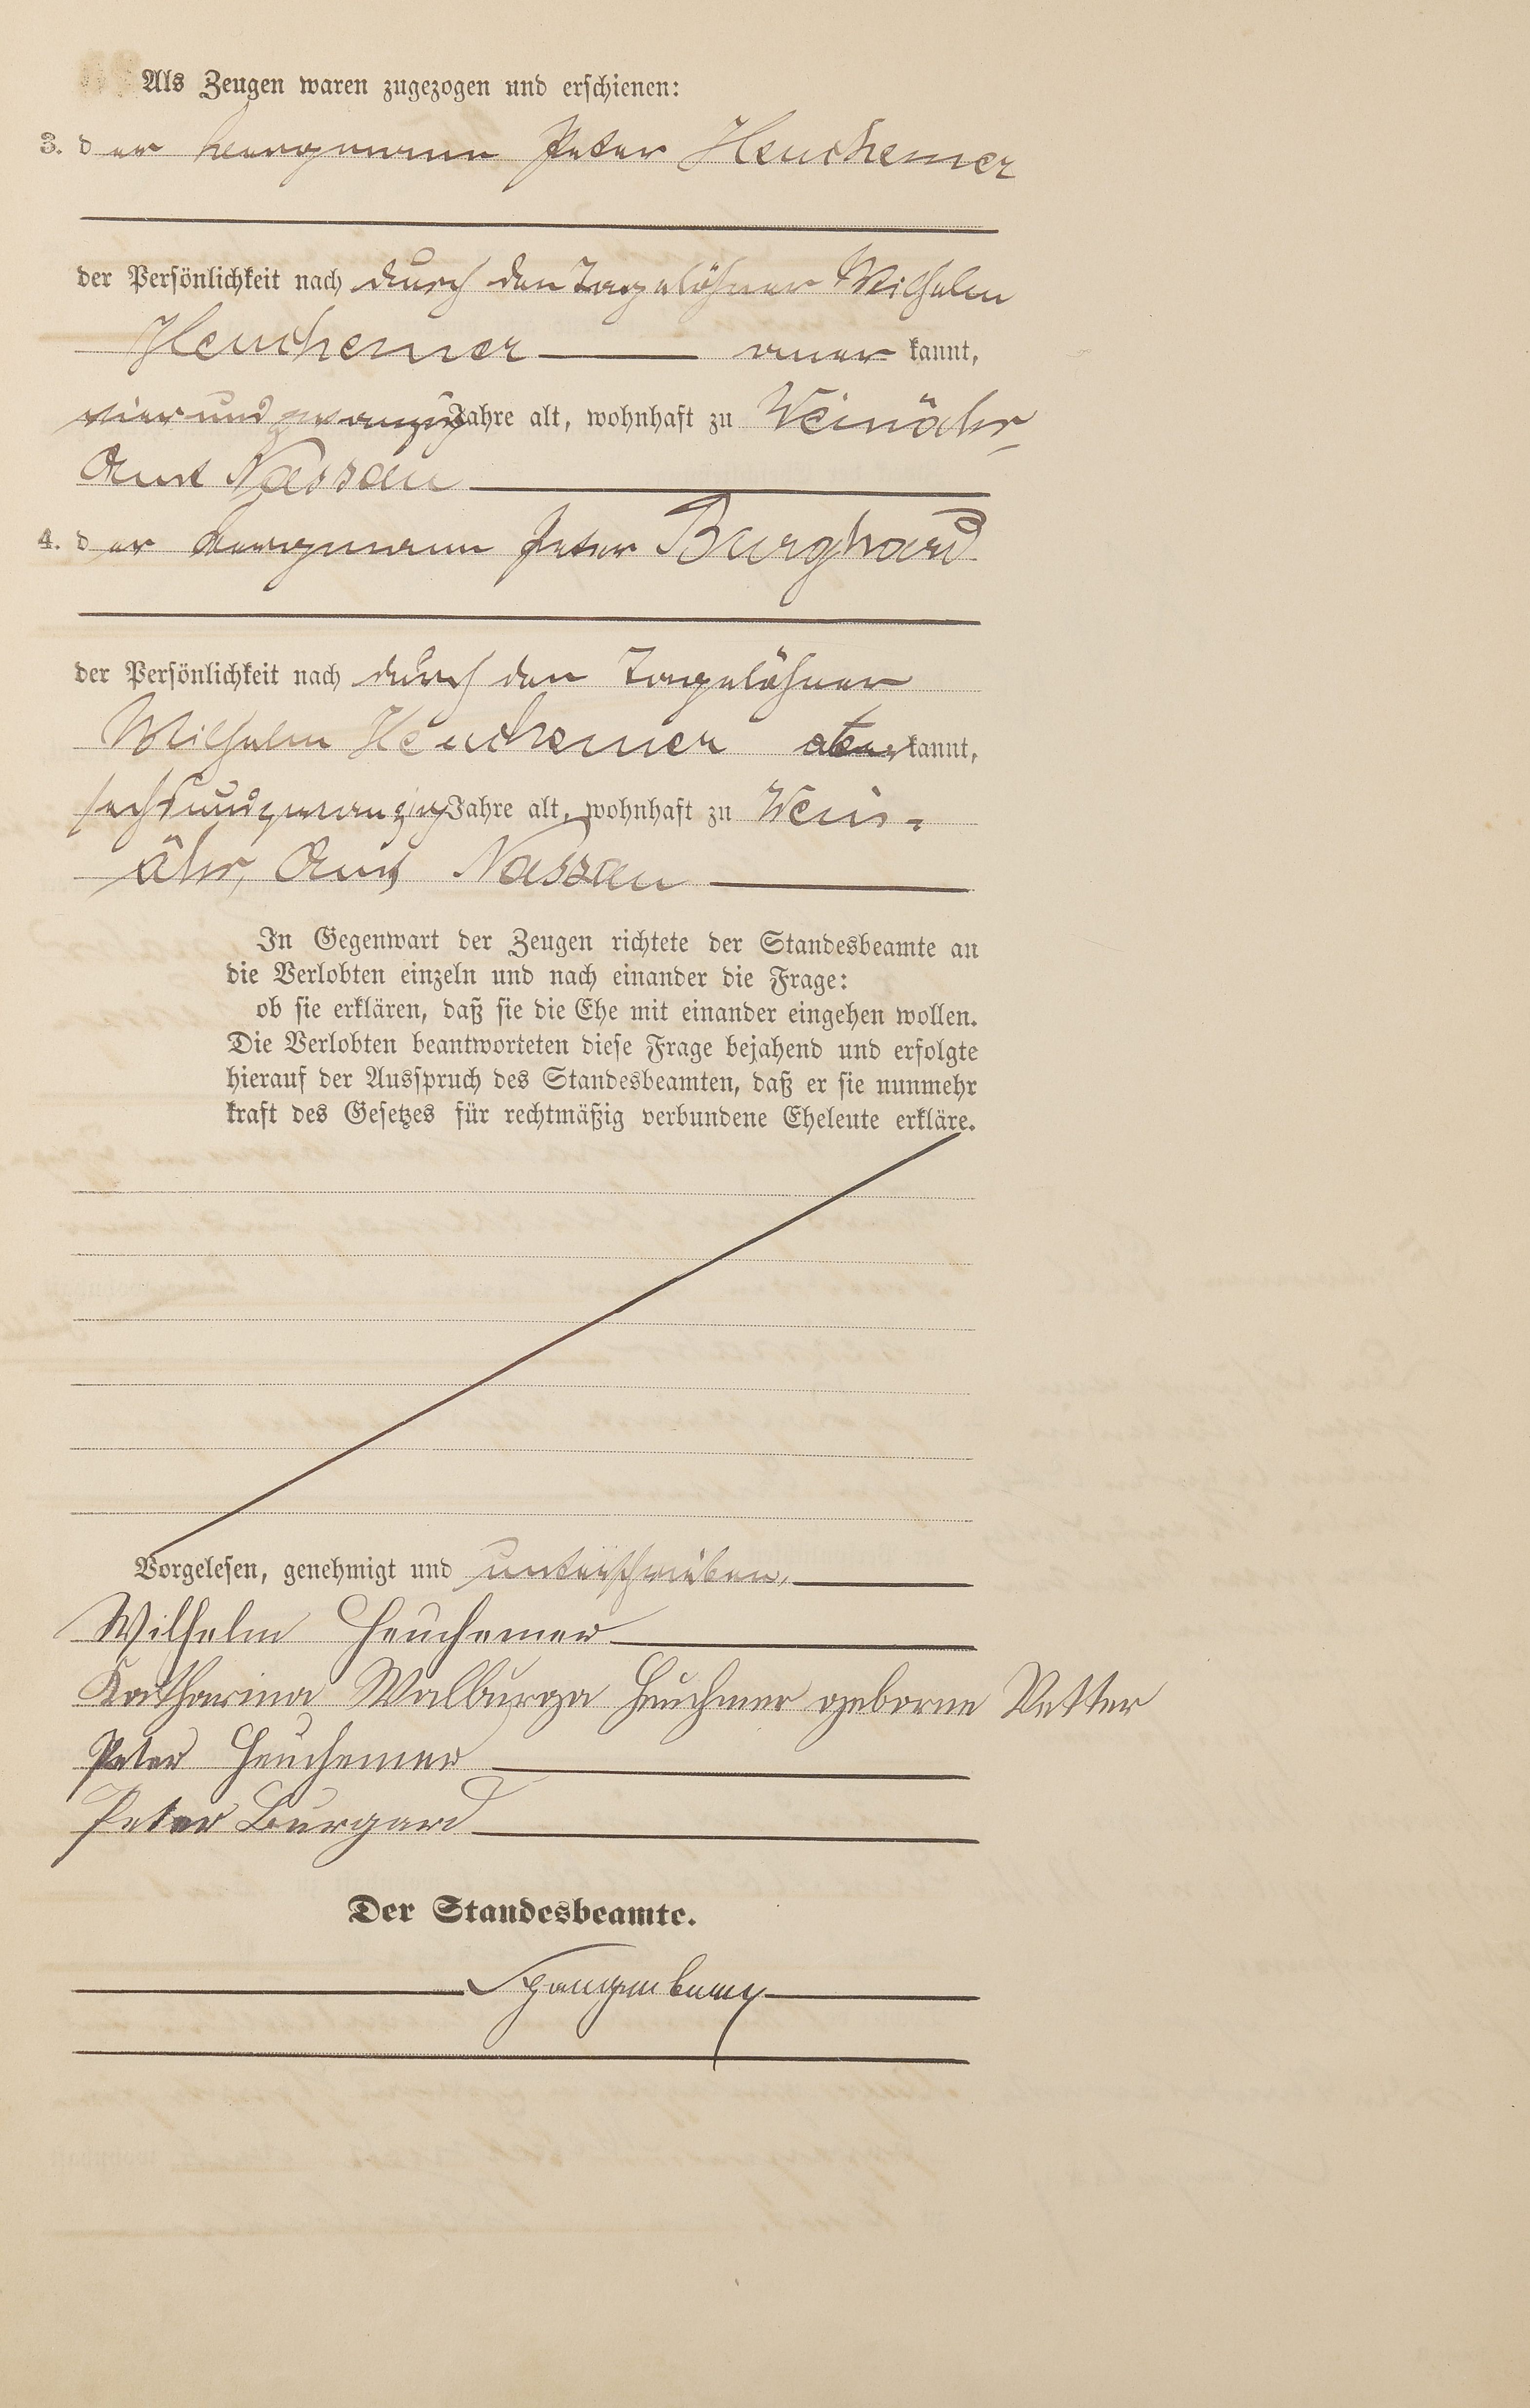 Als Zeugen waren zugezogen und erschienen:
3. der Bergmann Peter Heuchemer
der Persönlichkeit nach durch den Tagelöhner Wilhelm
Heuchemer anerkannt,
vierundzwanzig Jahre alt, wohnhaft zu Weinähr,
Amt Nassau
4. der Bergmann Peter Burghard
der Persönlichkeit nach durch den Tagelöhner
Wilhelm Heuchemer anerkannt,
sechsundzwanzig Jahre alt, wohnhaft zu Wein-
ähr, Amt Nassau
In Gegenwart der Zeugen richtete der Standesbeamte an
die Verlobten einzeln und nach einander die Frage:
ob sie erklären, daß sie die Ehe mit einander eingehen wollen.
Die Verlobten beantworteten diese Frage bejahend und erfolgte
hierauf der Ausspruch des Standesbeamten, daß er sie nunmehr
kraft des Gesetzes für rechtmäßig verbundene Eheleute erkläre.
Vorgelesen, genehmigt und unterschrieben,
Wilhelm Heuchemer
Katharina Walburga Heuchmer geborne Vetter
Peter Heuchemer
Peter Burgard
Der Standesbeamte.
Spangenberg